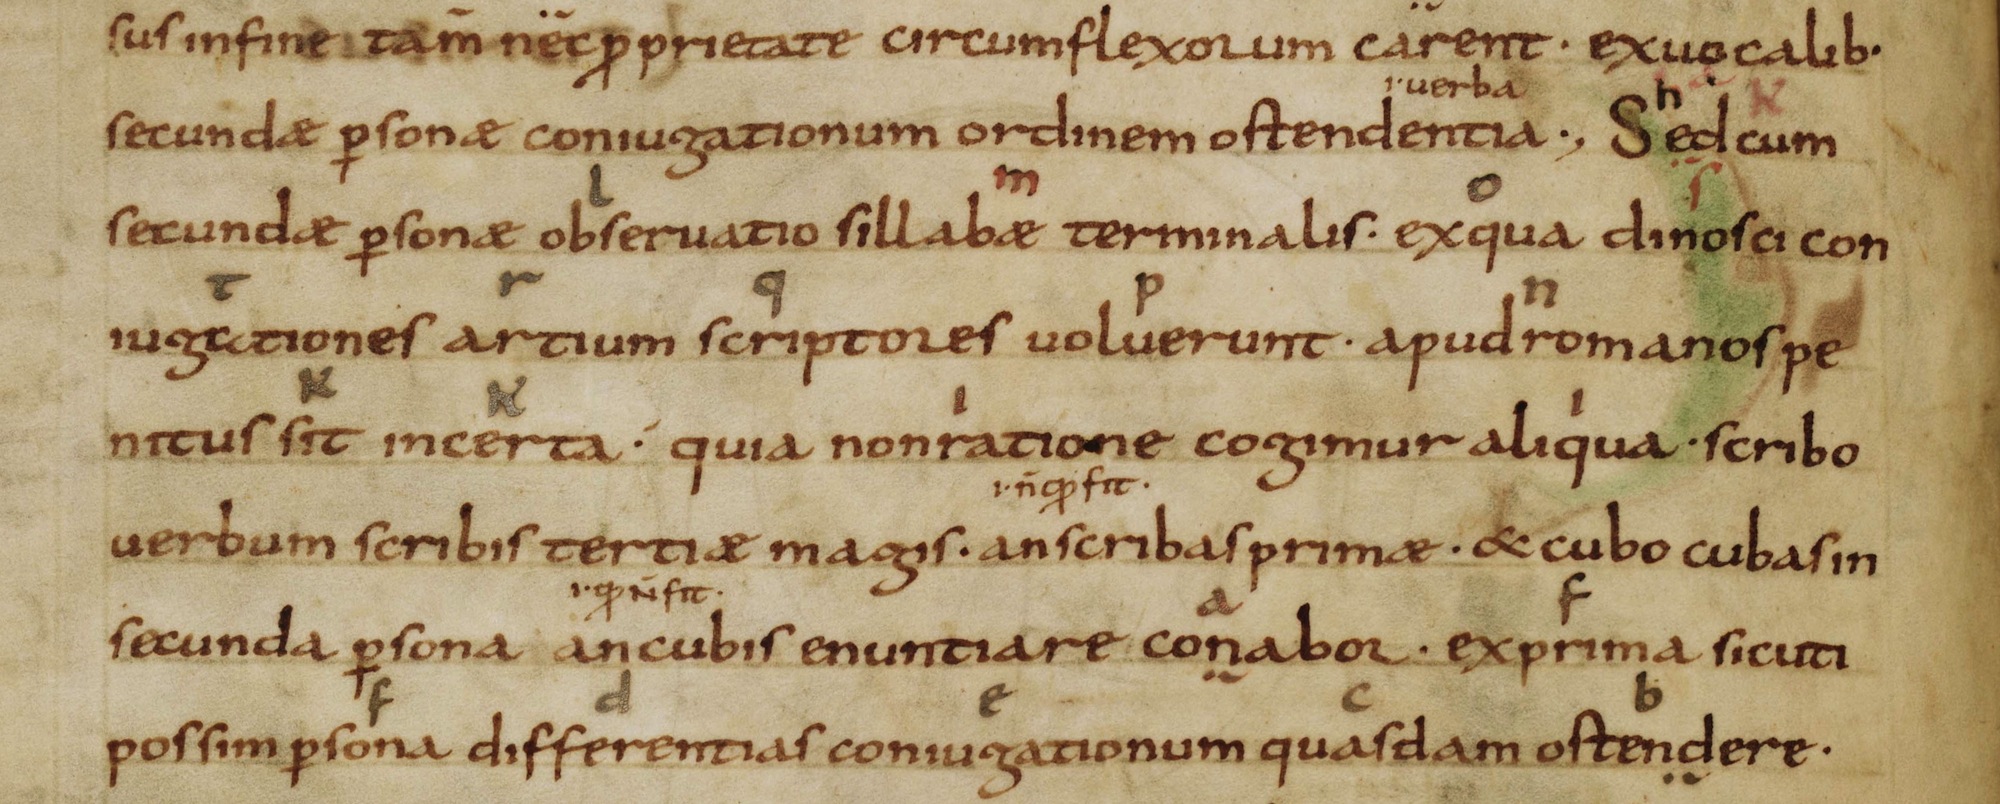 sus infine tam̄ nēc ꝓprietate circumflexorum carent · exuocalib·
i· uerba
h k
secundæ ꝑsonæ coniugationum ordinem ostendentia ·, Sed cum
l m o s
secundæ ꝑsonæ obseruatio sillabæ terminalis · exqua dinosci con
t r q p n
iugationes artium scriptores uoluerunt · apud romanos pe
k k i i
nitus sit incerta · quia non ratione cogimur aliqua · scribo
i· n̄ ꝙ ꝓfit·
uerbum scribis tertiæ magis · an scribas primæ · & cubo cubas in
i· ꝙ n̄ fit·
a f
secunda ꝑsona an cubis enuntiare conabor · exprima sicuti
f d e c b
possim ꝑsona differentias coniugationum quasdam ostendere ·